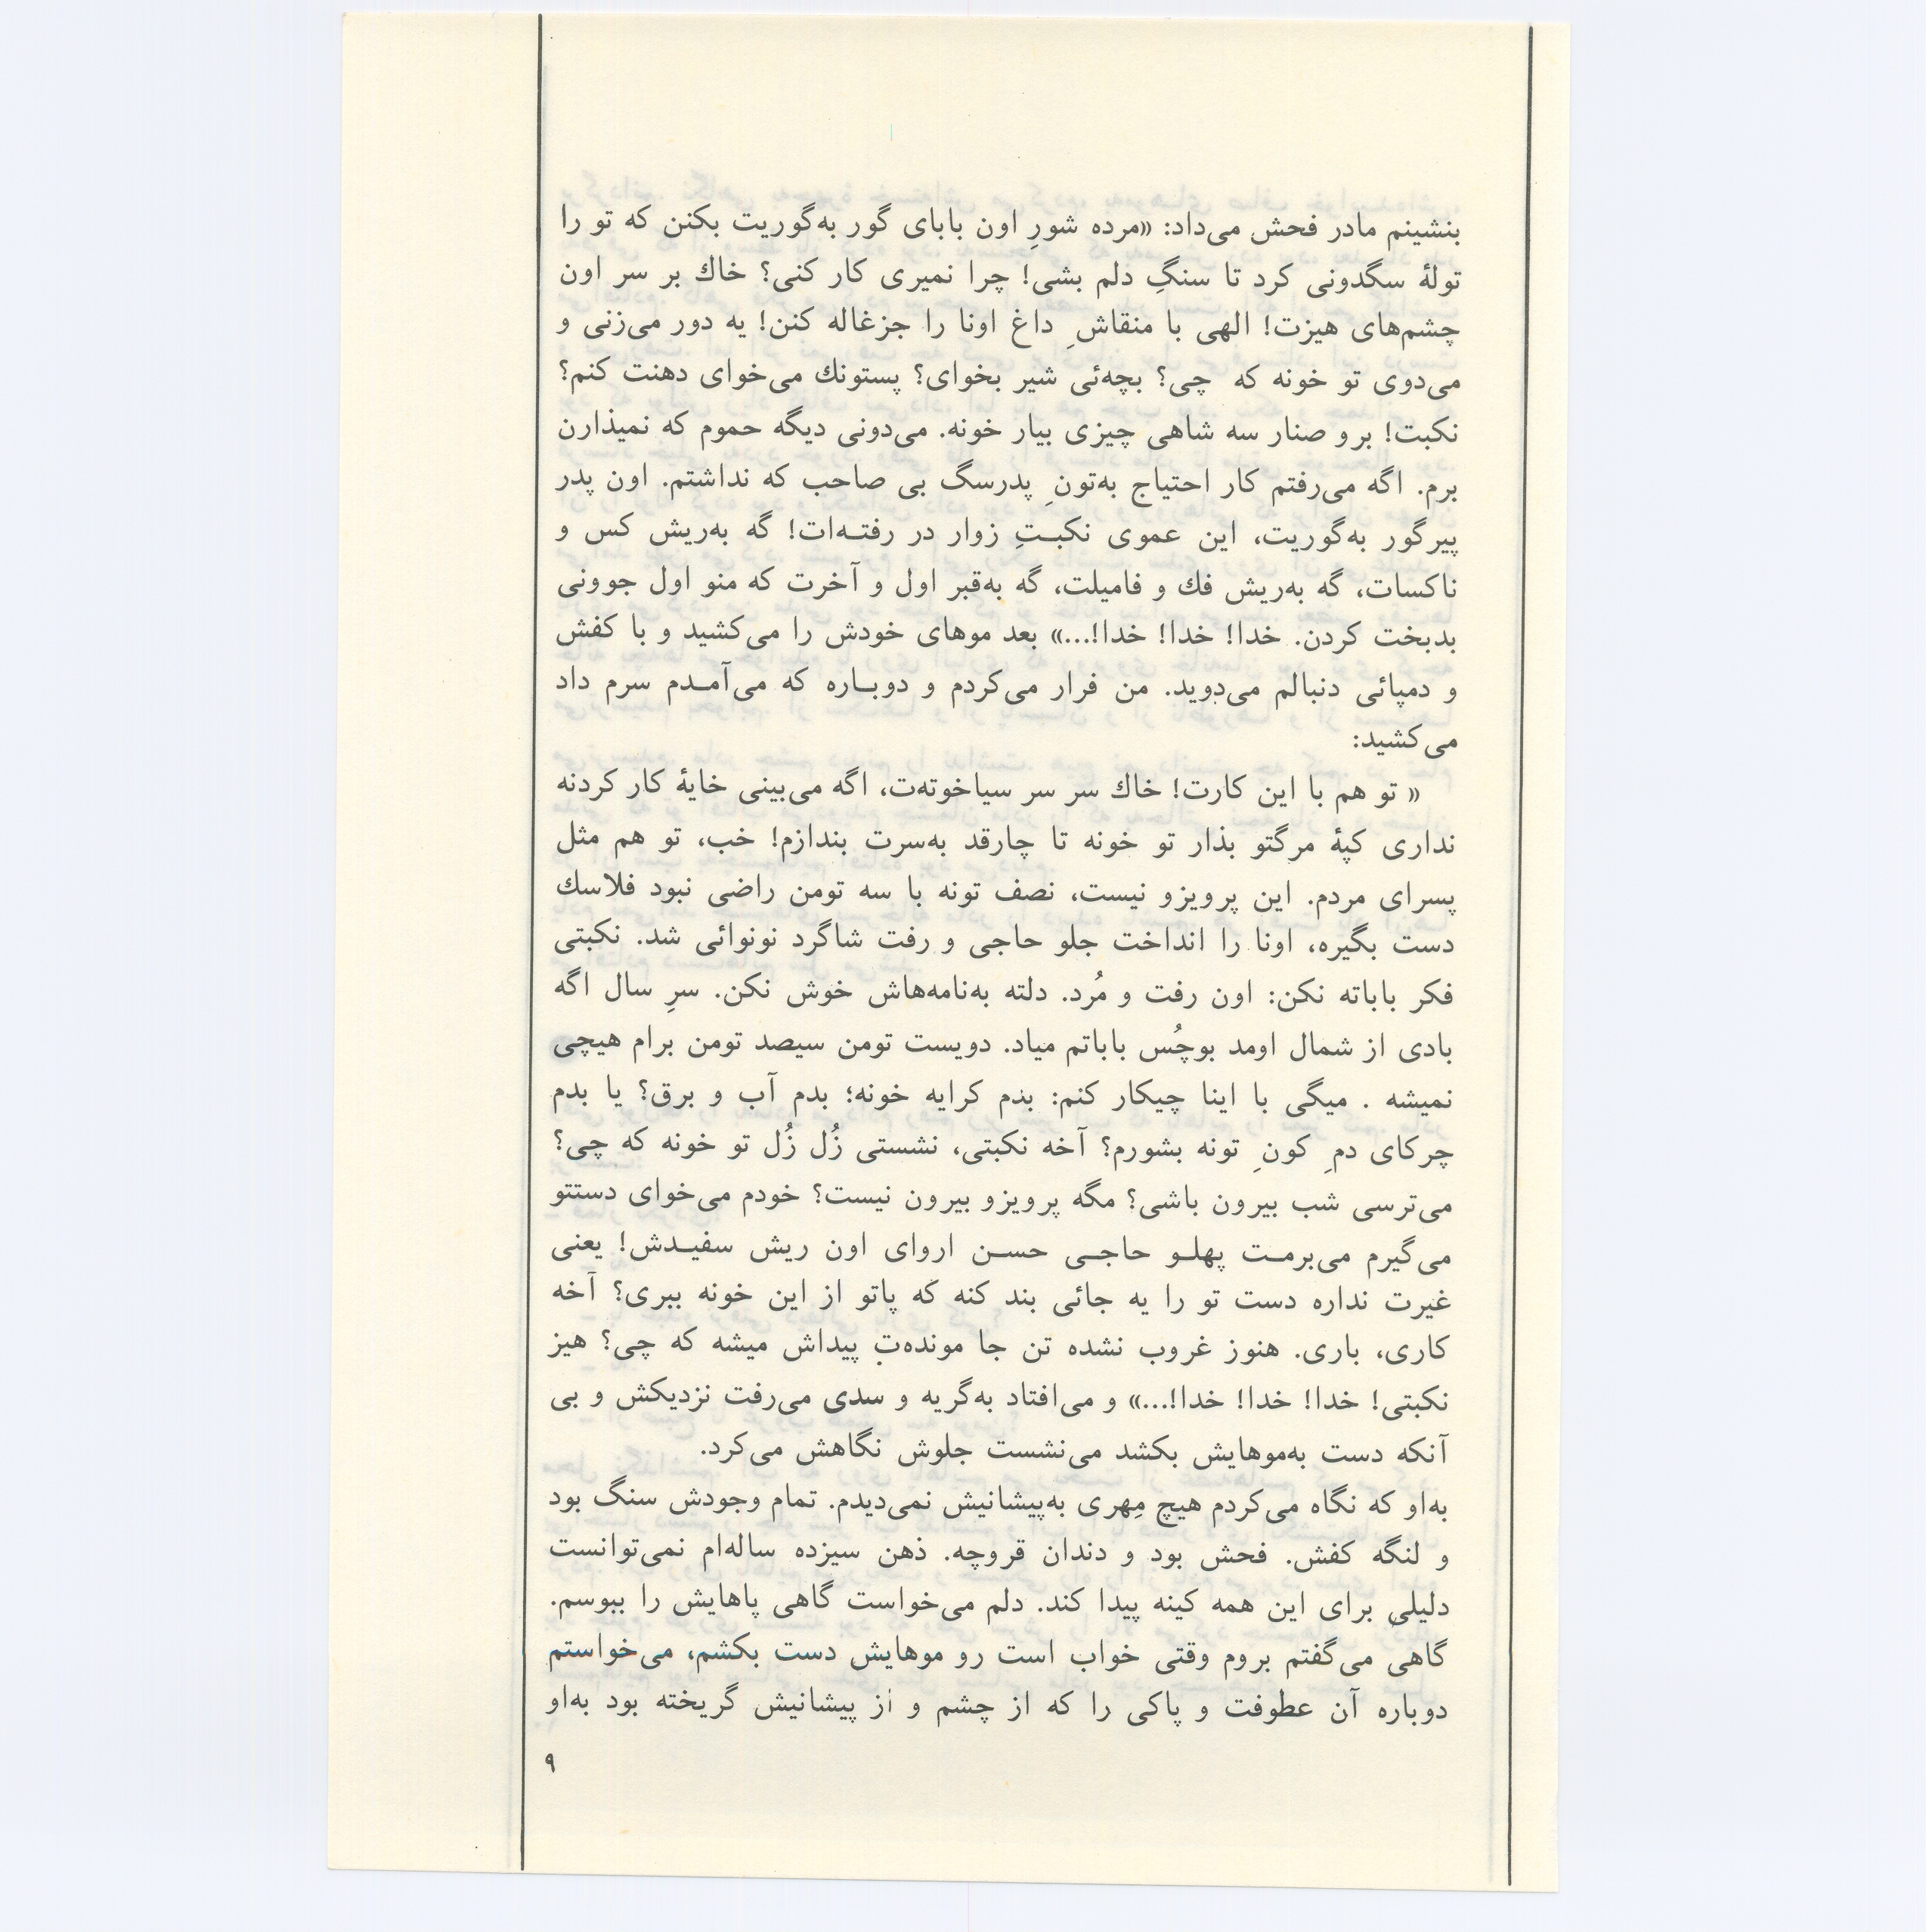 بنشینم مادر فحش می‌داد: «مرده شورِ اون بابای گور به‌گوریت بکنن که تو را
تولهٔ سگدونی کرد تا سنگِ دلم بشی! چرا نمیری کار کنی؟ خاك بر سر اون
چشم‌های هیزت! الهی با منقاشِ داغ اونا را جزغاله کنن! یه دور می‌زنی و
می‌دوی تو خونه که چی؟ بچه‌ئی شیر بخوای؟ پستونك می‌خوای دهنت کنم؟
نکبت! برو صنار سه شاهی چیزی بیار خونه. می‌دونی دیگه حموم که نمیذارن
برم. اگه می‌رفتم کار احتیاج به‌تونِ پدرسگ بی صاحب که نداشتم. اون پدر
پیرگور به‌گوریت، این عموی نکبـتِ زوار در رفتـه‌ات! گه به‌ریش کس و
ناکسات، گه به‌ریش فك و فامیلت، گه به‌قبر اول و آخرت که منو اول جوونی
بدبخت کردن. خدا! خدا! خدا!...» بعد موهای خودش را می‌کشید و با کفش
و دمپائی دنبالم می‌دوید. من فرار می‌کردم و دوبـاره که می‌آمـدم سرم داد
می‌کشید:
« تو هم با این کارت! خاك سر سر سیاخوته‌ت، اگه می‌بینی خایهٔ کار کردنه
نداری کپهٔ مرگتو بذار تو خونه تا چارقد به‌سرت بندازم! خب، تو هم مثل
پسرای مردم. این پرویزو نیست، نصف تونه با سه تومن راضی نبود فلاسك
دست بگیره، اونا را انداخت جلو حاجی و رفت شاگرد نونوائی شد. نکبتی
فکر باباته نکن: اون رفت و مُرد. دلته به‌نامه‌هاش خوش نکن. سرِ سال اگه
بادی از شمال اومد بوچُس باباتم میاد. دویست تومن سیصد تومن برام هیچی
نمیشه . میگی با اینا چیکار کنم: بدم کرایه خونه؛ بدم آب و برق؟ یا بدم
چرکای دمِ کونِ تونه بشورم؟ آخه نکبتی، نشستی زُل زُل تو خونه که چی؟
می‌ترسی شب بیرون باشی؟ مگه پرویزو بیرون نیست؟ خودم می‌خوای دستتو
می‌گیرم می‌برمـت پهلـو حاجـی حسـن اروای اون ریش سفیـدش! یعنی
غیرت نداره دست تو را یه جائی بند کنه که پاتو از این خونه ببری؟ آخه
کاری، باری. هنوز غروب نشده تن جا مونده‌تِ پیداش میشه که چی؟ هیز
نکبتی! خدا! خدا! خدا!...» و می‌افتاد به‌گریه و سدی می‌رفت نزدیکش و بی
آنکه دست به‌موهایش بکشد می‌نشست جلوش نگاهش می‌کرد.
به‌او که نگاه می‌کردم هیچ مِهری به‌پیشانیش نمی‌دیدم. تمام وجودش سنگ بود
و لنگه کفش. فحش بود و دندان قروچه. ذهن سیزده ساله‌ام نمی‌توانست
دلیلی برای این همه کینه پیدا کند. دلم می‌خواست گاهی پاهایش را ببوسم.
گاهی می‌گفتم بروم وقتی خواب است رو موهایش دست بکشم، می‌خواستم
دوباره آن عطوفت و پاکی را که از چشم و از پیشانیش گریخته بود به‌او
۹